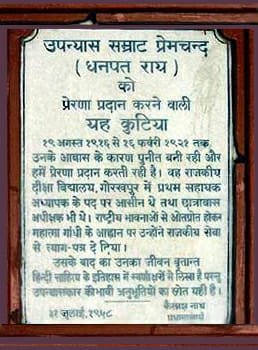 उपन्यास सम्राट प्रेमचन्द
(धनपत राय)
को
प्रेरणा प्रदान करने वाली
यह कुटिया
१९ अगस्त १९१६ से १६ फर्वरी १९२१ तक
उनके आवास के कारण पुनीत बनी रही और
हमें प्रेरणा प्रदान करती रही है। वह राजकीय
दीक्षा विद्यालय, गोरखपुर में प्रथम सहायक
अध्यापक के पद पर आसीन थे तथा छात्रावास
अधीक्षक भी थे। राष्ट्रीय भावनाओं से ओतप्रोत होकर
महात्मा गाँधी के आह्वान पर उन्होंने राजकीय सेवा
से त्याग-पत्र दे दिया।
उसके बाद का उनका जीवन वृतान्त
हिन्दी साहित्य के इतिहास में स्वर्णाक्षरों से लिखा है परन्तु
उपन्यासकार की भावी अनुभूतियों का स्रोत यही है।
कैलाश नाथ
३१ जुलाई, १९५८ प्रधानाचार्य